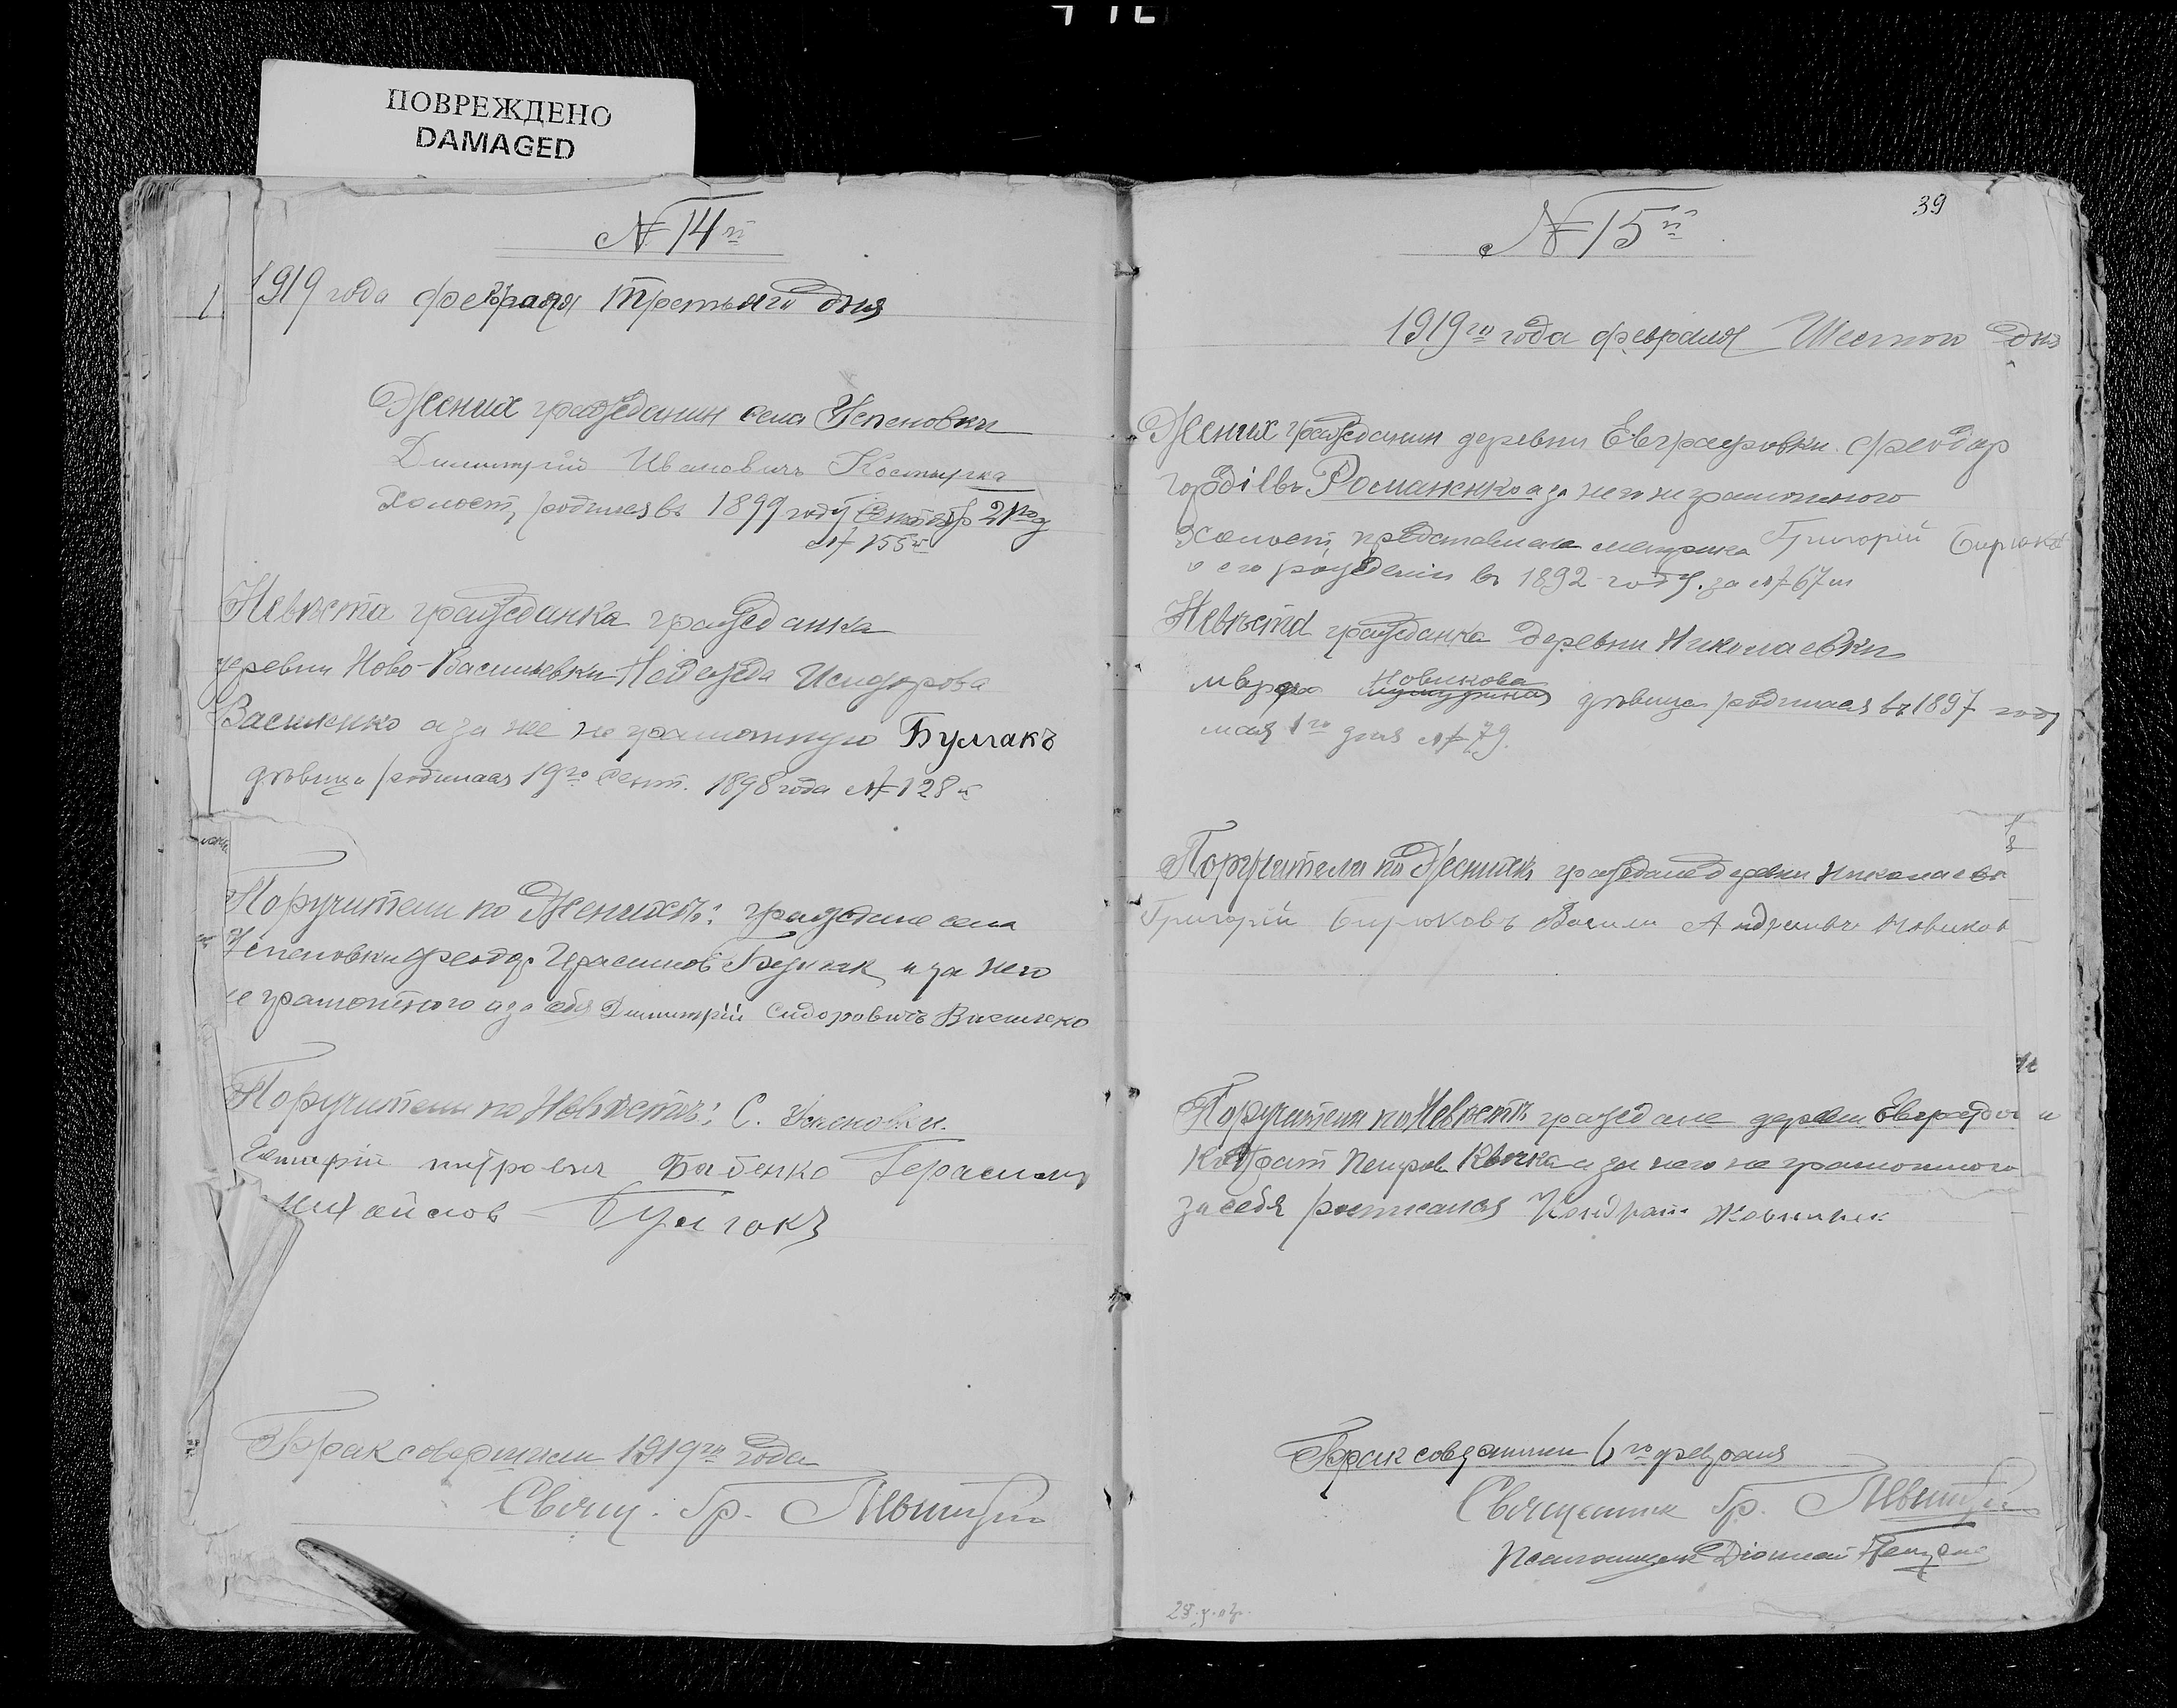 ПОВРЕЖДЕНО
DAMAGED
№ 14й
1919 года февраля третьяго дня
Жених гражданин села Успеновки
Димитрій Ивановичъ
Холост, родился въ 1899 году 21го
№ 155й
Невѣста гражданка гражданка
деревни Ново-Васильевки Надежда Исидорова
Василенко а за нее неграмотную Булгакъ
дѣвица родилася 19го сент. 1898 года № 128й
Поручители по Женихѣ: граждане села
Успеновки Феодор Герасимов Булгак и за него
неграмотного а за себя Димитрій Сидоровичъ Василенко
Поручители по Невѣстѣ: С. Успеновки.
Бабенко Герасим
Михайлов Булгакъ
Брак совершили 1919го года
Свящ. Гр.
39
№ 15й
1919го года февраля Шестого дня
Жених гражданин деревни Евграфовки Феодор
Романенко а за него неграмотного
Холост, представлена метрика Григорій Бирюков
о его рожденіи въ 1892 году за № 67м
Невѣста гражданка деревни Николаевки
Новикова дѣвица родилася въ 1897 году
мая 1го дня № 79.
Поручители по Женихѣ граждане деревни Николаевк
Григорій Бирюковъ Василий Андреевич Новиков
Поручители по Невѣстѣ граждане деревни Евграфовки
Кондрат Петров а за него не грамотного
за себя росписался Кондрат
Брак совершили 6го февраля
Священник Гр.
Псаломщик